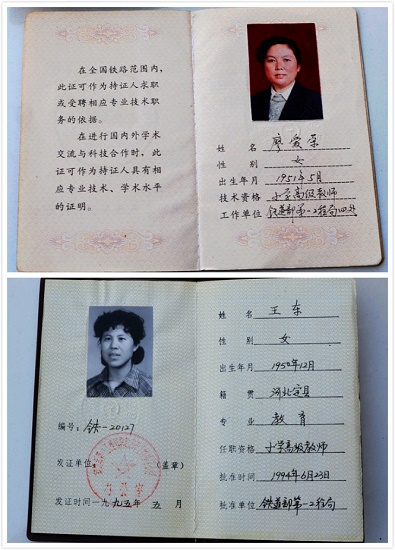 在全国铁路范围内，
此证可作为持证人求职
或受聘相应专业技术职
务的依据。
在进行国内外学术
交流与科技合作时，此
证可作为持证人具有相
应专业技术、学术水平
的证明。
姓 名 廖爱荣
性 别 女
出生年月 1951年5月
技术资格 小学高级教师
工作单位 铁道部第一工程局四处
编号：铁-20127
发证单位： （盖章）
办公室
发证时间一九九五年 五 月
姓 名 王东
性 别 女
出生年月 1950年12月
籍 贯 河北定县
专 业 教育
任职资格 小学高级教师
批准时间 1994年6月23日
批准单位 铁道部第一工程局